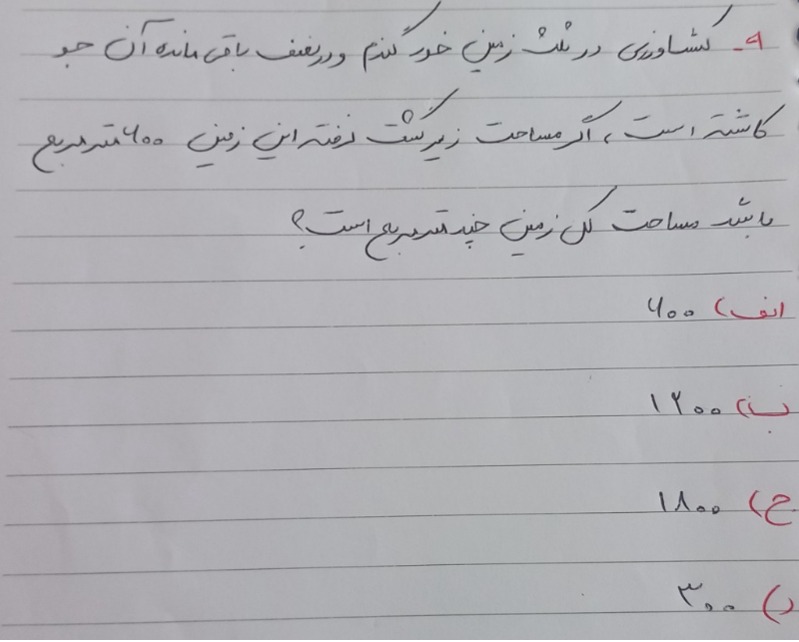 ۹- کشاورزی در ثلث زمین خود گندم و در نصف باقی مانده آن جو
کاشته است، اگر مساحت زیر کشت نرفته این زمین ۶۰۰ متر مربع
باشد مساحت کل زمین چند متر مربع است؟
الف) ۶۰۰
ب) ۱۲۰۰
ج) ۱۸۰۰
د) ۳۰۰